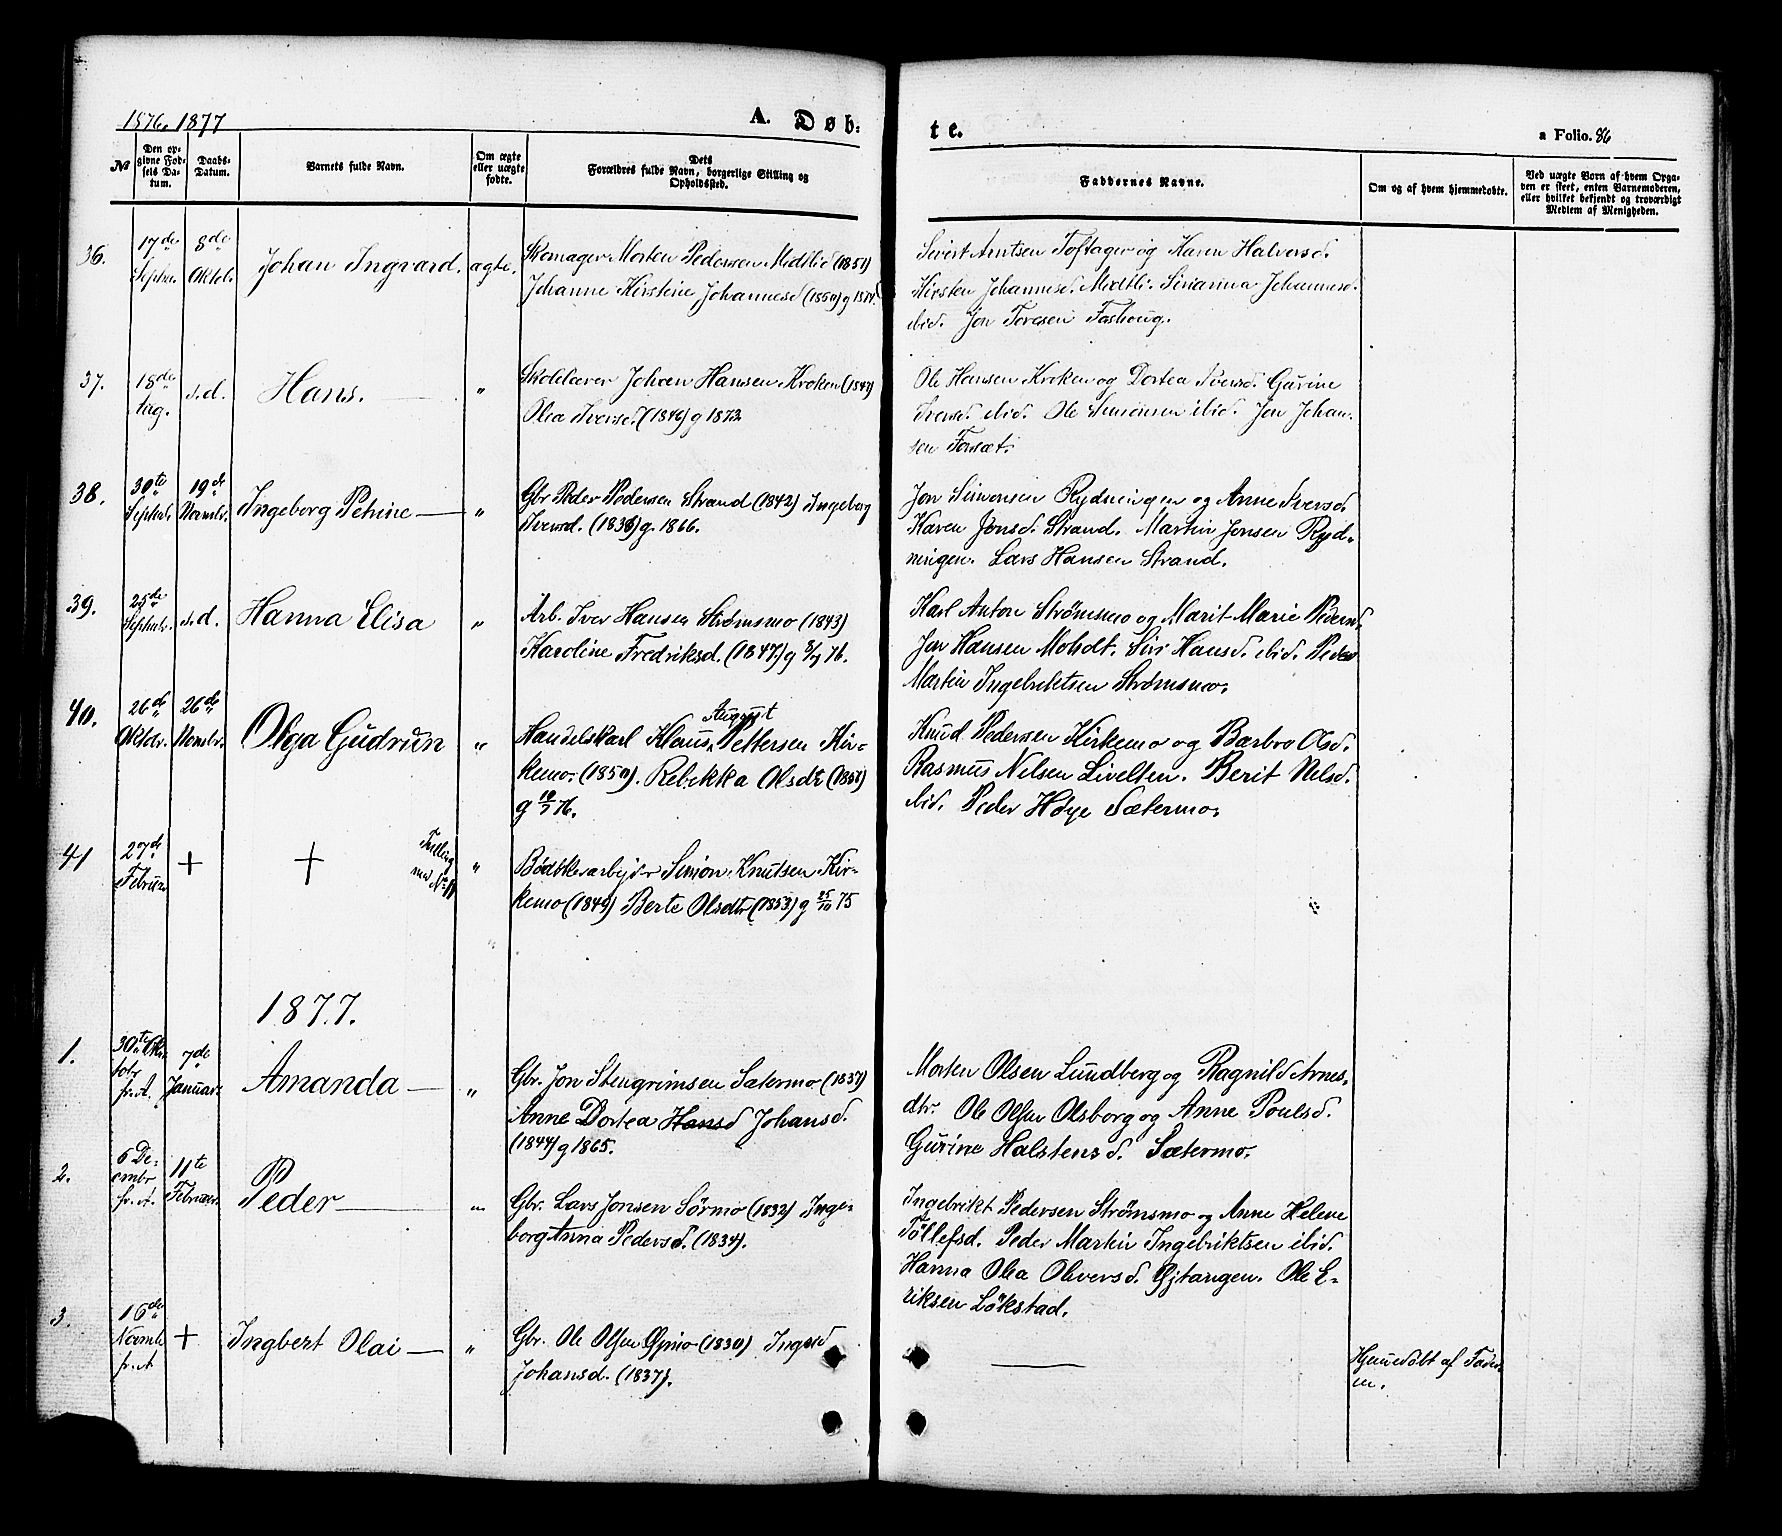 1876. 1877
A. Døb-
te.
a Folio. 86
№
Den op-
givne Fød-
sels Da-
tum.
Daabs-
Datum.
Barnets fulde Navn.
Om ægte
eller uægte
fødte.
Dets
Forældres fulde Navn, borgerlige Stilling og
Opholdssted.
Faddernes Navne.
Om og af hvem hjemmedøbte.
Ved uægte Born af hvem Opga-
ven er skeet, enten Barnemoderen,
eller hvilket bekjendt og troværdigt
Medlem af Menigheden.
36.
17de
Septbr.
8de
Oktob.
Johan Ingvard.
ægte.
Skomager Morten Pedersen Midtli (1851)
Johanne Kirstine Johannesd (1850) g
Sivert Arntsen Toftager og Karen Halversd.
Kirsten Johannesd. Midtli. Johannesd.
ibid. Jon Toresen
37.
18de
Aug.
s.d.
Hans.
"
Skolelærer Johan Hansen Kroken
Olea Iversd. (1846) g 1872
Ole Hansen Kroken og Dortea Iversd. Gurine
Iversd. ibid. Ole Simonsen ibid. Jon Johan-
sen Forsæt.
38.
30te
Septbr.
19de
Novmbr.
Ingeborg Petrine
"
Gbr Peder Pedersen Strand (1842) Ingeborg
Iversd. g. 1866.
Jon Simonsen Rydningen og Anne Iversd.
Karen Jonsd. Strand. Martin Jonsen Ryd-
ningen. Lars Hansen Strand.
39.
25de
Septbr.
s.d.
Hanna Elisa
"
Arb. Iver Hansen Strømsmo (1843)
Karoline Fredriksd. (1847) g 8/7 76.
Karl Anton Strømsmo og Marit Marie Pedersd.
Jon Hansen Moholt. Siri Hansd. ibid. Peder
Martin Ingebriktsen Strømsmo.
40.
26de
Oktbr.
26de
Novmbr.
Olga Gudrun
"
August
Handelskarl Klaus Pettersen Kir-
kemo. (1850). Rebekka Olsdtr
g 76.
Knud Pedersen Kirkemo og Barbro Olsd.
Rasmus Nelsen Livelten. Berit Nelsd.
ibid. Peder Høye Sætermo.
41
27de
Februar
+
+
Tvilling
med No 11
"
Bødtkerarbejder Simon Knutsen Kir-
kemo (1849) Berte Olsdtr (1853) g 25/10 75
1877.
1.
30te Ok-
tobr
fr. A.
7de
Januar
Amanda
"
Gbr. Jon Stengrimsen Sætermo (1837)
Anne Dortea Hansd Johansd.
(1844) g 1865.
Morten Olsen Lundberg og Ragnild Arnes-
dtr. Ole Olsen Olsborg og Anne Poulsd.
Gurine Halstensd. Sætermo.
2.
6 De-
cembr
fr. A.
11te
Februar
Peder
"
Gbr. Lars Jonsen Sørmo (1832) Inge-
borg Anna Pedersd. (1834).
Ingebrikt Pedersen Strømsmo og Anne Helene
Tollefsd. Peder Martin Ingebriktsen ibid.
Hanna Olea Oliversd. Gjtangen. Ole E-
riksen Løkstad.
3.
16de
Novmb
fr. A
+
Ingbert Olai
"
Gbr. Ole Olsen (1830)
Johansd. (1837).
Hjemmedøbt af Fader-
en.